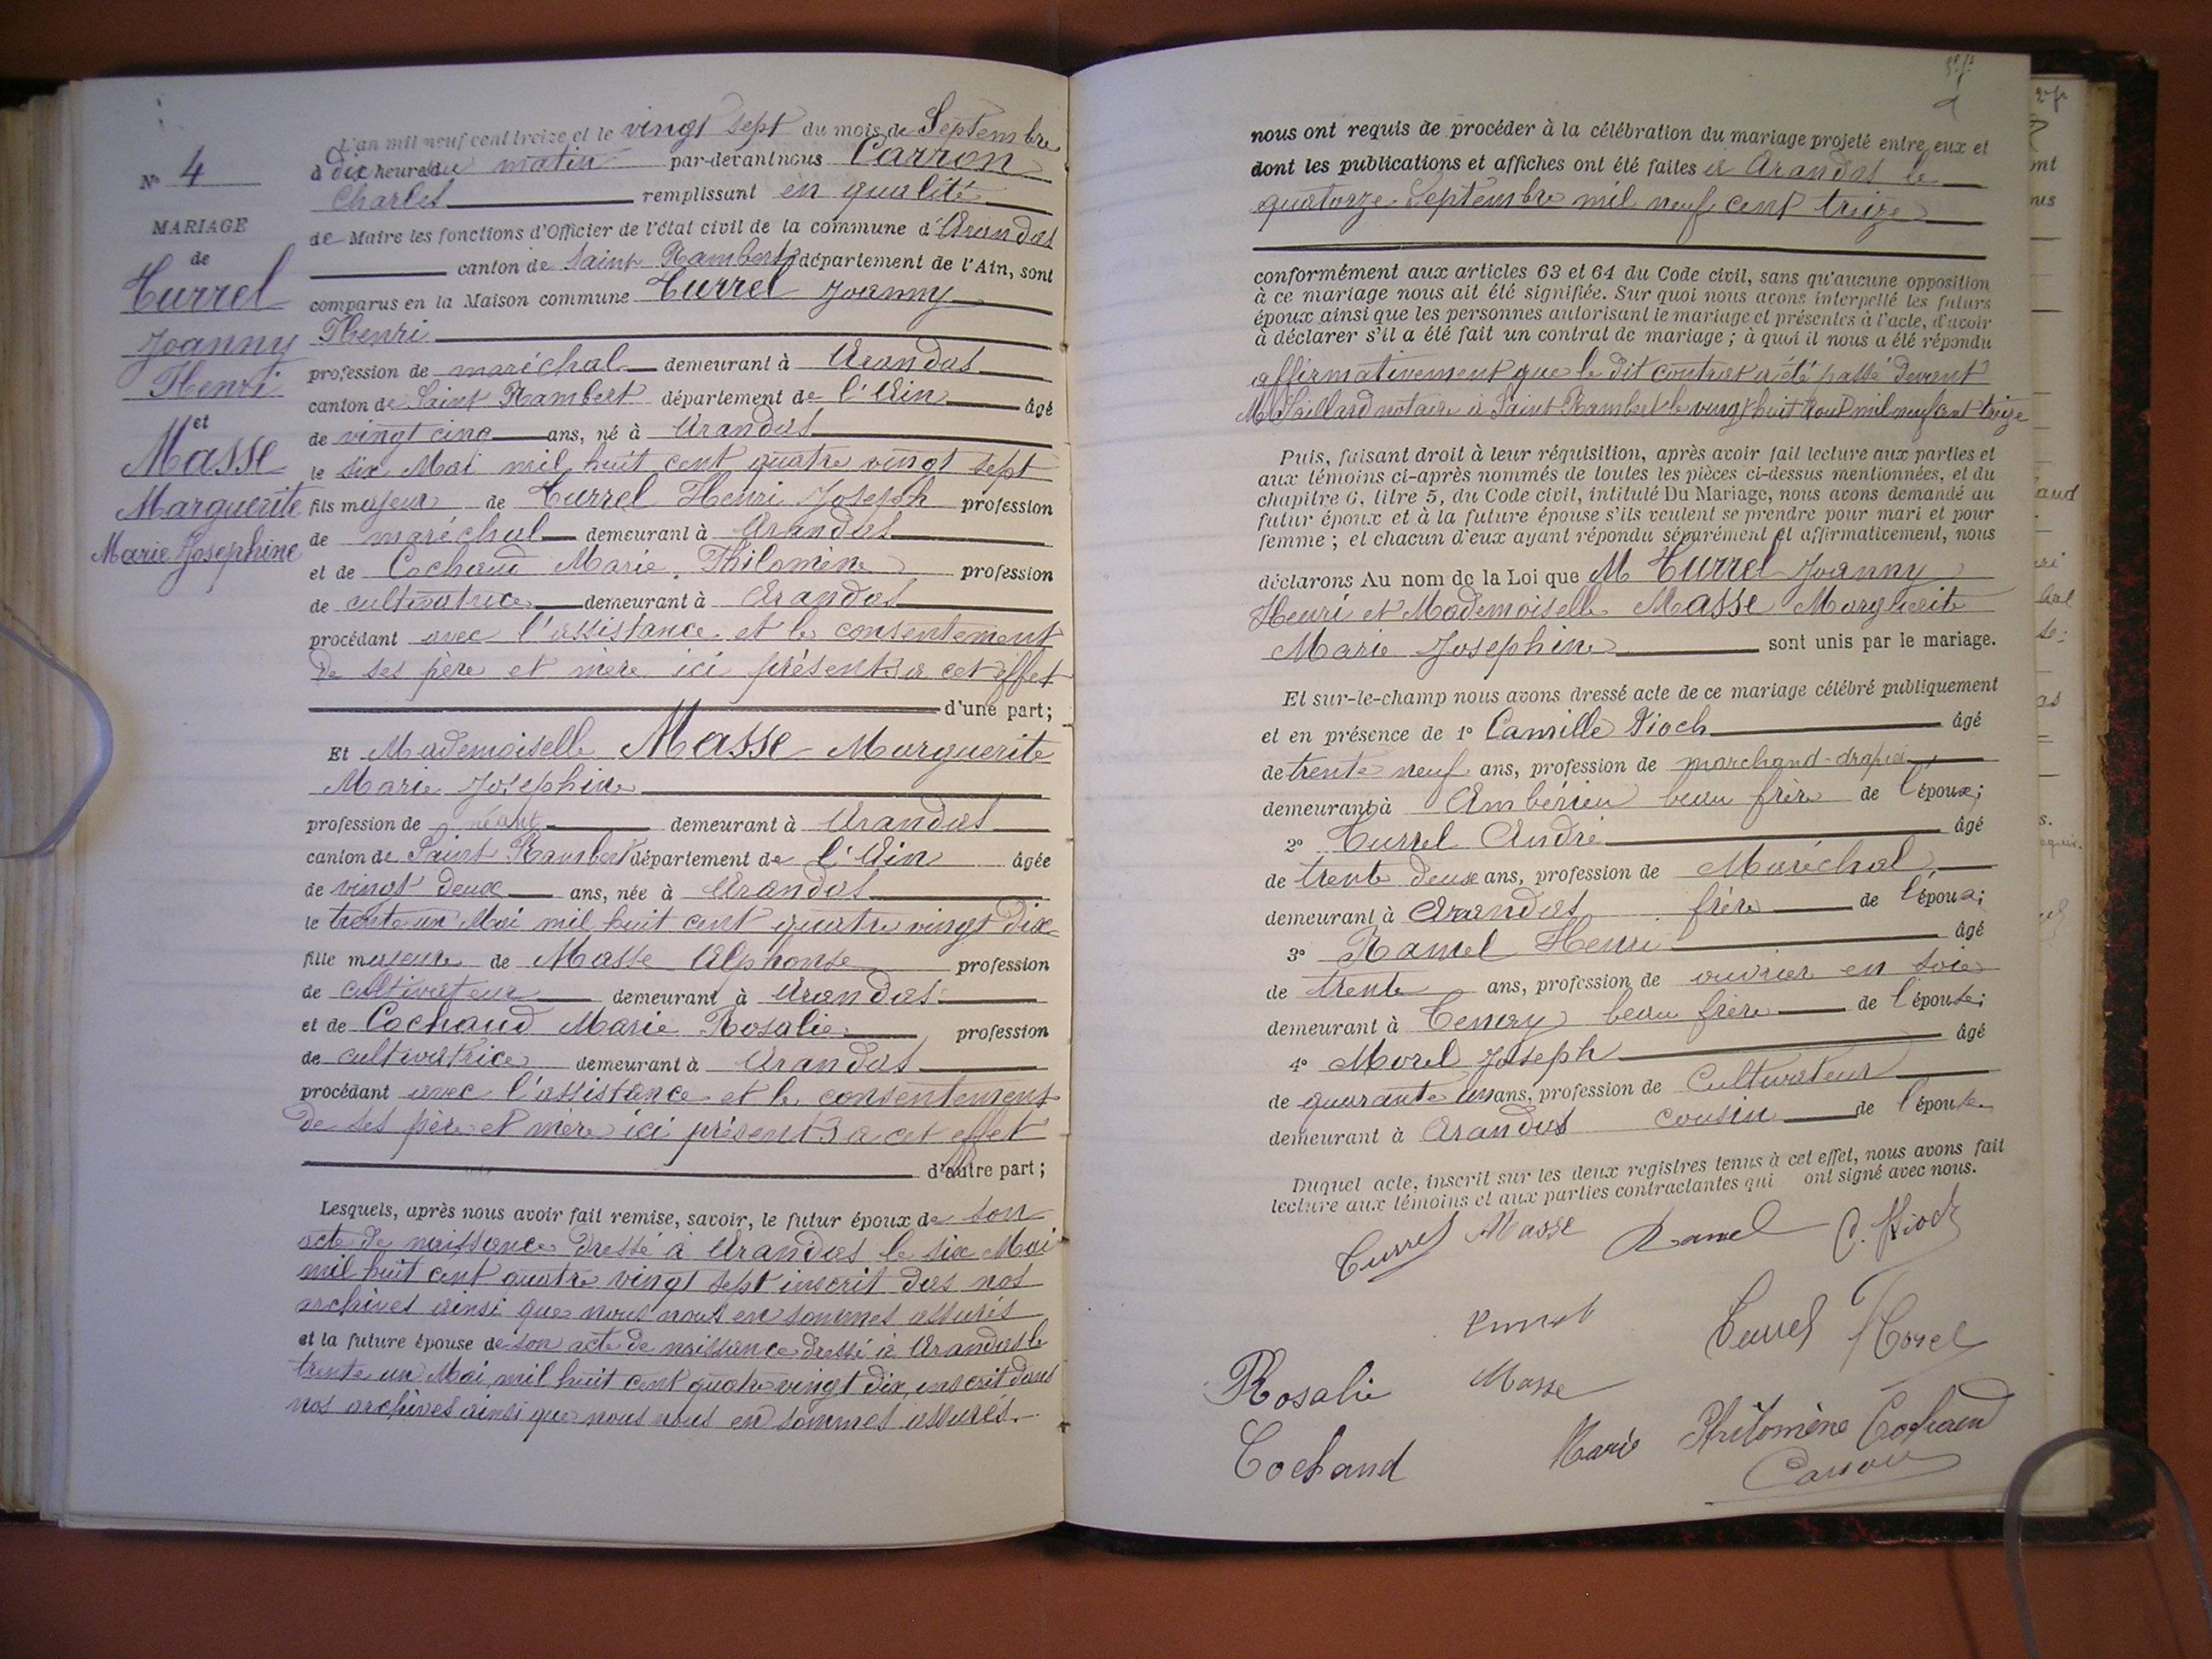 N° 4
MARIAGE
de
Currel
Joanny
Henri
et
Masse
Marguerite
Marie Josephine
L'an mil neuf cent treize et le vingt sept du mois de Septembre
à dix heures du matin par-devant nous Carron
Charles remplissant en qualité
de Maire les fonctions d'Officier de l'état civil de la commune d'Arandas
canton de Saint Rambert département de l'Ain, sont
comparus en la Maison commune Currel Joanny
Henri
profession de maréchal demeurant à Arandas
canton de Saint Rambert département de l'Ain âgé
de vingt cinq ans, né à Arandas
le six Mai mil huit cent quatre vingt sept
fils majeur de Currel Henri Joseph profession
de maréchal demeurant à Arandas
et de Cochaud Marie Philomène profession
de cultivatrice demeurant à Arandas
procédant avec l'assistance et le consentement
de ses père et mère ici présents a cet effet
d'une part;
Et Mademoiselle Masse Marguerite
Marie Josephine
profession de néant demeurant à Arandas
canton de Saint Rambert département de l'Ain âgée
de vingt deux ans, née à Arandas
le trente un Mai mil huit cent quatre vingt dix
fille majeure de Masse Alphonse profession
de cultivateur demeurant à Arandas
et de Cochaud Marie Rosalie profession
de cultivatrice demeurant à Arandas
procédant avec l'assistance et le consentement
de ses père et mère ici présents a cet effet
d'autre part;
Lesquels, après nous avoir fait remise, savoir, le futur époux de son
acte de naissance dressé à Arandas le six Mai
mil huit cent quatre vingt sept inscrit das nos
archives ainsi que nous nous en sommes assurés
et la future épouse de son acte de naissance dressé à Arandas le
trente un Mai mil huit cent quatre vingt dix, inscrit dans
nos archives ainsi que nous nous en sommes assurés.
nous ont requis de procéder à la célébration du mariage projeté entre eux et
dont les publications et affiches ont été faites à Arandas le
quatorze Septembre mil neuf cent treize
conformément aux articles 63 et 64 du Code civil, sans qu'aucune opposition
à ce mariage nous ait été signifiée. Sur quoi nous avons interpellé les futurs
époux ainsi que les personnes autorisant le mariage et présentes à l'acte, d'avoir
à déclarer s'il a été fait un contrat de mariage; à quoi il nous a été répondu
affirmativement que le dit contrat a été passé devant
Me Saillard notaire à Saint Rambert le vingt huit Aout mil neuf cent treize
Puis, faisant droit à leur réquisition, après avoir fait lecture aux parties et
aux témoins ci-après nommés de toutes les pièces ci-dessus mentionnées, et du
chapitre 6, titre 5, du Code civil, intitulé Du Mariage, nous avons demandé au
futur époux et à la future épouse s'ils veulent se prendre pour mari et pour
femme; et chacun d'eux ayant répondu séparément et affirmativement, nous
déclarons Au nom de la Loi que M Currel Joanny
Henri et Mademoiselle Masse Marguerite
Marie Josephine sont unis par le mariage.
Et sur-le-champ nous avons dressé acte de ce mariage célébré publiquement
et en présence de 1° Camille Pioch âgé
de trente neuf ans, profession de marchand-drapier
demeurant à Ambérieu beau frère de l'époux;
2° Currel André âgé
de trente deux ans, profession de Maréchal
demeurant à Arandas frère de l'époux;
3° Ramel Henri âgé
de trente ans, profession de ouvrier en soie
demeurant à Tenay beau frère de l'épouse;
4° Morel Joseph âgé
de quarante un ans, profession de Cultivateur
demeurant à Arandas cousin de l'épouse
Duquel acte, inscrit sur les deux registres tenus à cet effet, nous avons fait
lecture aux témoins et aux parties contractantes qui ont signé avec nous.
Currel Masse Ramel C. Pioch
Currel Morel
Rosalie Masse
Cochaud Marie Philomène Cochaud
Carron